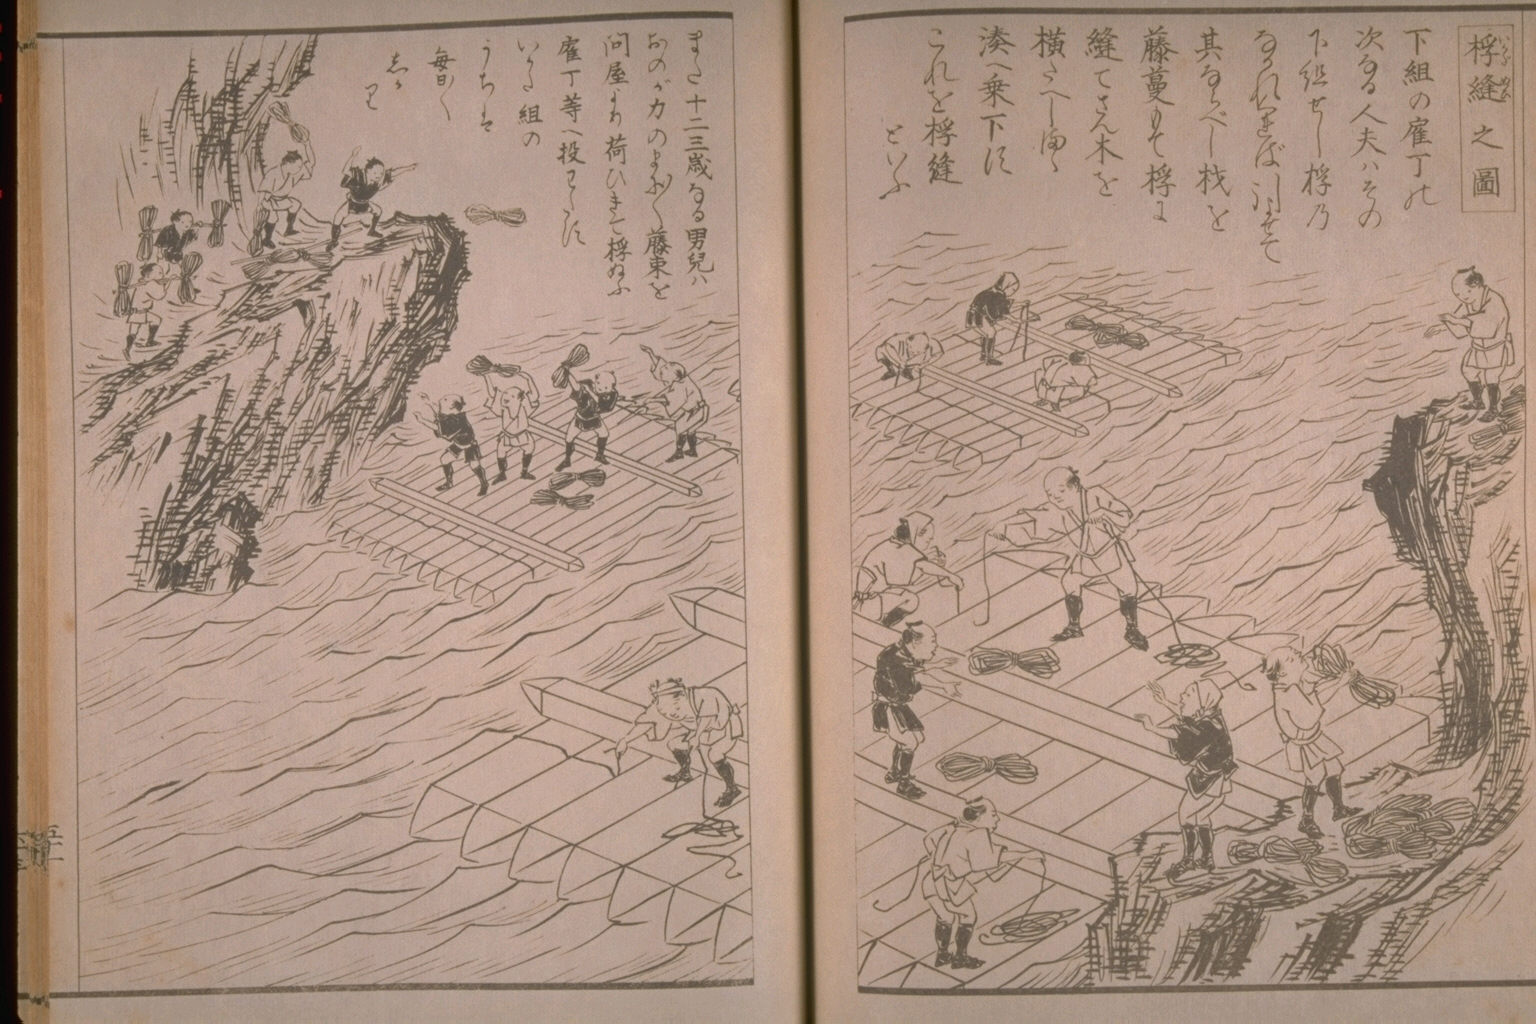 桴縫之圖
いかだ ぬひ
下組の雇丁の
次なる人夫ハその
下組せし桴乃
ながれ来れば引よせて
其ならべし栰を
藤蔓もて桴に
縫てさん木を
横たへしめ
湊へ乗下す
これを桴縫
といふ
また十二三歳なる男兒ハ
おのが力のまゝ藤束を
問屋より荷ひきて桴ぬふ
雇丁等へ投わたす
いかた組の
うちは
毎日〳〵
しかり